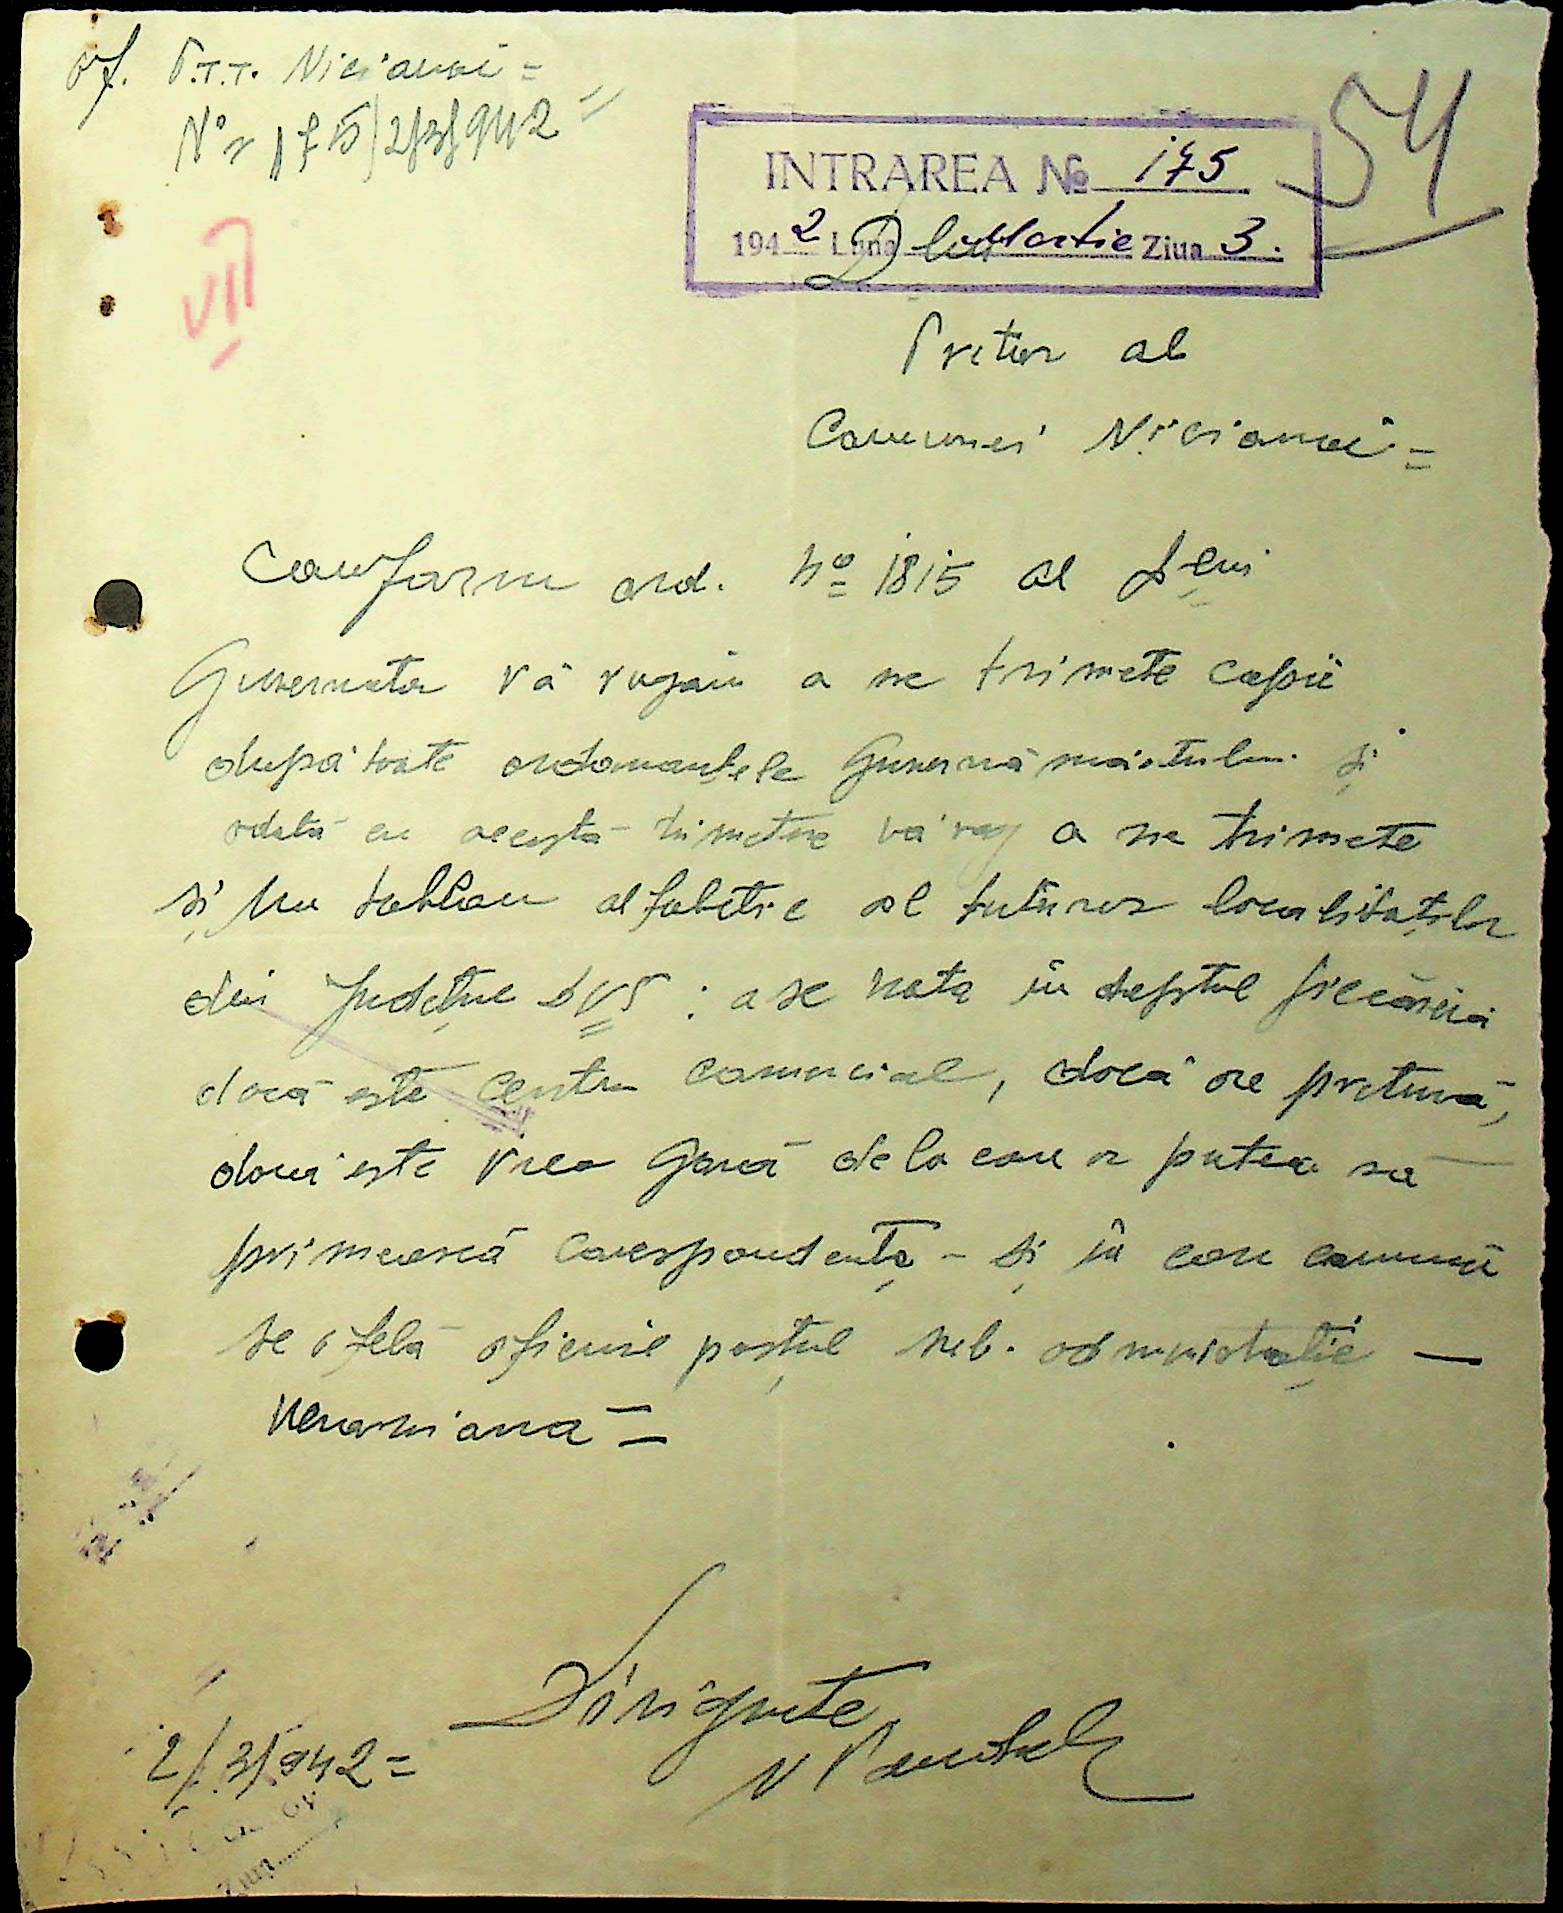 Of. P.T.T. Nicianoi =
No 175/2/3/942 =
54
INTRAREA No 175
1942 Luna Martie Ziua 3.
VII
D lui
Pretor al
Comunei Nicianoi =
Conform ord. No 1815 al D lui
Guvernator vă rugăm a ne trimete copii
după toate ordonanțele Guvernământului și
odată cu acestă trimetere vă rog a ne trimete
și un tablou alfabetic al tuturor localităților
din Județul : a se nota în dreptul fiecăreia
dacă este centru comercial, dacă are pretură,
dacă este vreo gară de la care ar putea să
primească corespondența - și în care comună
se află oficiul poștal sub. administrație —
=
Diriginte
2/3/942 =
Ziua